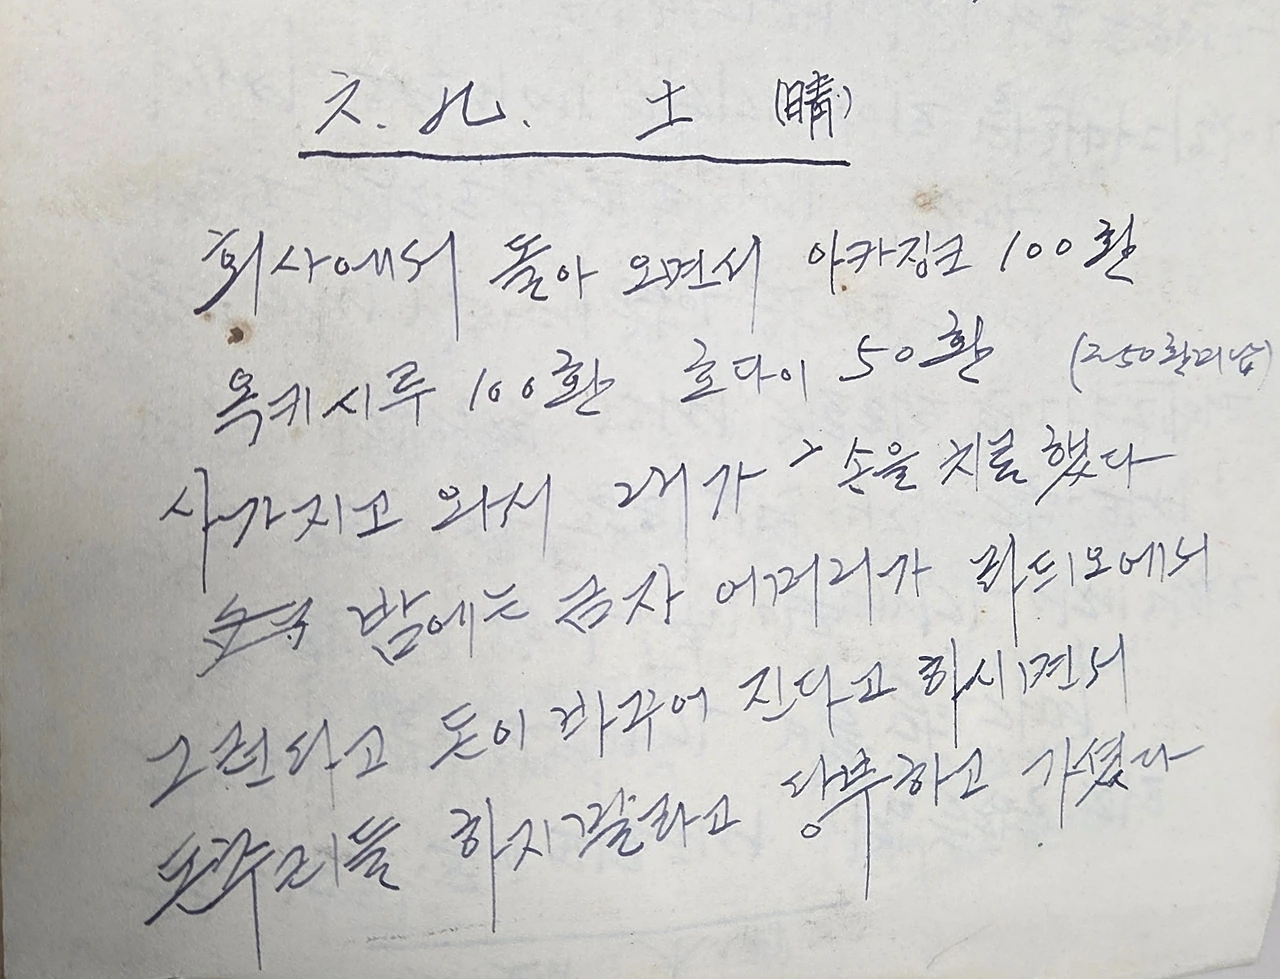 六. 九. 土 (晴)
회사에서 돌아 오면서 아카징크 100환
옥키시루 100환 호다이 50환
사가지고 와서 내가 손을 치료했다
밤에는 금자 어머리가 라듸오에서
그런다고 돈이 바꾸어 진다고 하시면서
하지말라고 당부하고 가셨다